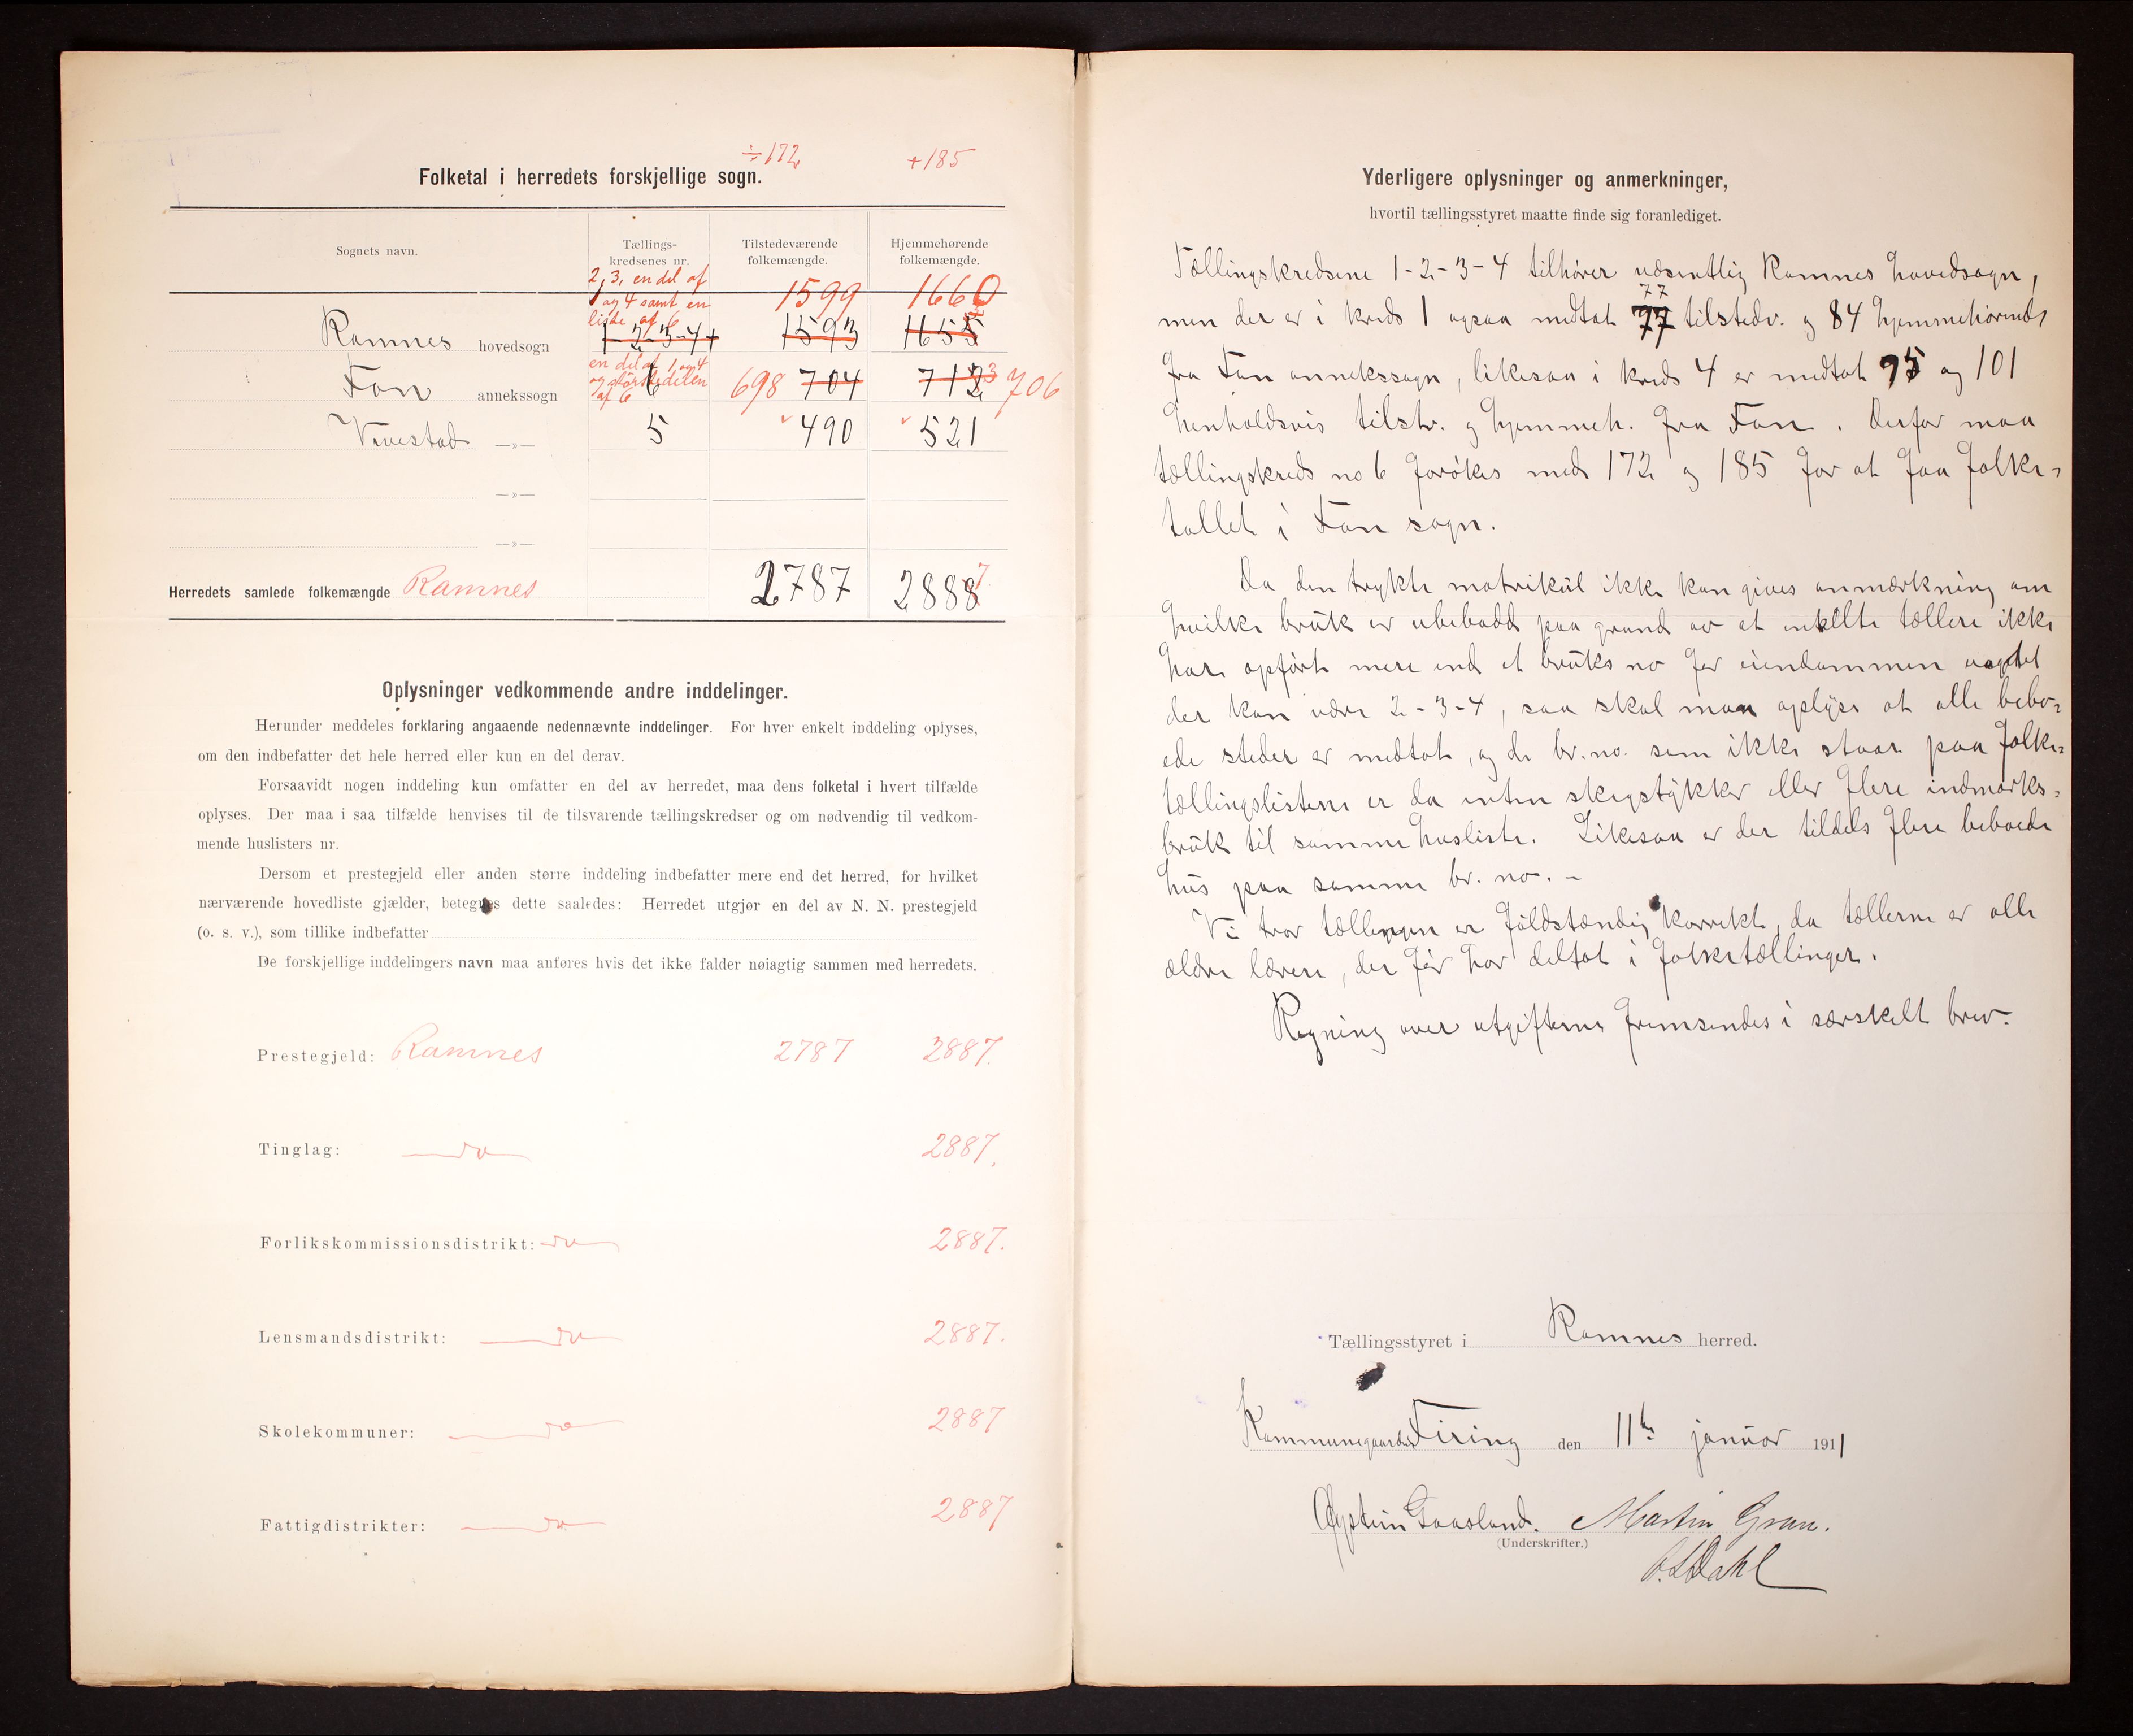 ÷172 +185
Folketal i herredets forskjellige sogn.
Sognets navn.
Tællings-
kredsenes nr.
Tilstedeværende
folkemængde.
Hjemmehørende
folkemængde.
2, 3, en del af
1 og 4 samt en
liste af 6
1599 1660
Ramnes hovedsogn 1-2-3-4 1593 1655
en del af 1 og 4
og største delen
af 6
Fon annekssogn 6 698 704 712 3 706
Vivestad —»— 5 490 521
—»—
—»—
Herredets samlede folkemængde Ramnes 2787 2888 7
Oplysninger vedkommende andre inddelinger.
Herunder meddeles forklaring angaaende nedennævnte inddelinger. For hver enkelt inddeling oplyses,
om den indbefatter det hele herred eller kun en del derav.
Forsaavidt nogen inddeling kun omfatter en del av herredet, maa dens folketal i hvert tilfælde
oplyses. Der maa i saa tilfælde henvises til de tilsvarende tællingskredser og om nødvendig til vedkom-
mende huslisters nr.
Dersom et prestegjeld eller anden større inddeling indbefatter mere end det herred, for hvilket
nærværende hovedliste gjælder, betegnes dette saaledes: Herredet utgjør en del av N. N. prestegjeld
(o. s. v.), som tillike indbefatter
De forskjellige inddelingers navn maa anføres hvis det ikke falder nøiagtig sammen med herredets.
Prestegjeld: Ramnes 2787 2887.
Tinglag: — do — 2887.
Forlikskommissionsdistrikt: — do — 2887.
Lensmandsdistrikt: — do — 2887.
Skolekommuner: — do — 2887
Fattigdistrikter: — do — 2887
Yderligere oplysninger og anmerkninger,
hvortil tællingsstyret maatte finde sig foranlediget.
Tællingskredsene 1-2-3-4 tilhører væsentlig Ramnes hovedsogn,
77
men der er i kreds 1 ogsaa medtat 77 tilstedv. og 84 hjemmehörende
fra Fon annekssogn, likesaa i kreds 4 er medtat 95 og 101
henholdsvis tilstv. og hjemmeh. fra Fon. Derfor maa
tællingskreds no 6 forökes med 172 og 185 for at faa folke=
tallet i Fon sogn.
Da den trykte matrikul ikke kan gives anmærkning om
hvilke bruk er ubebodd paa grund av at enkelte tællere ikke
har opfört mere end et bruks no for eiendommen uagtet
der kan være 2-3-4, saa skal man oplyse at alle bebo=
ede steder er medtat, og de br.no. som ikke staar paa folke=
tællingslisterne er da enten skogstykker eller flere indmarks=
bruk til samme husliste. Likesaa er der tildels flere beboede
hus paa samme br. no. -
Vi tror tællingen er fuldstændig korrekt, da tællerne er alle
ældre lærere, der för har deltat i folketællinger.
Regning over utgifterne fremsendes i særskilt brev.
Tællingsstyret i Ramnes herred.
Kommunegaarden Firing den 11te januar 1911
Øystein Gaasland. Martin Gran.
(Underskrifter.)
Dahl